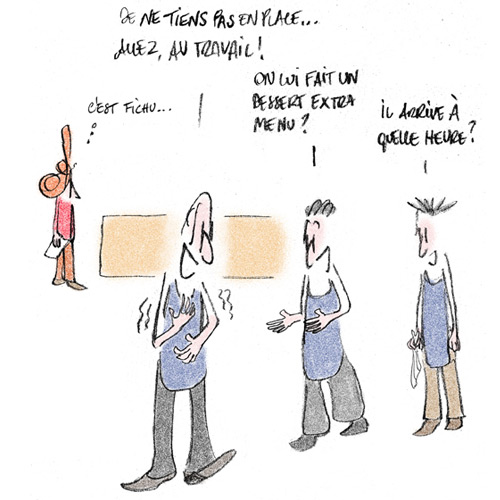 JE NE TIENS PAS EN PLACE...
ALLEZ, AU TRAVAIL!
C'EST FICHU...
ON LUI FAIT UN
DESSERT EXTRA
MENU?
IL ARRIVE À
QUELLE HEURE?